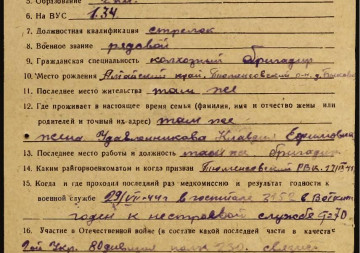 5. Образование
6. На ВУС 134
7. Должностная квалификация стрелок
8. Военное звание рядовой
9. Гражданская специальность колхозный бригадир
10. Место рождения Алтайский край,
11. Последнее место жительства там же
12. Где проживает в настоящее время семья (фамилия, имя и отчество жены или
родителей и точный их адрес) там же
жена Клавдия Ефимовна
13. Последнее место работы и должность там же бригадир
14. Каким райгорвоенкоматом и когда призван РВК
15. Когда и где проходил последний раз медкомиссию и результат годности к
военной службе 29/VII-44г в госпитале 3155 в
годен к нестроевой службе
16. Участие в Отечественной войне (в составе какой последней части и в качестве
полк